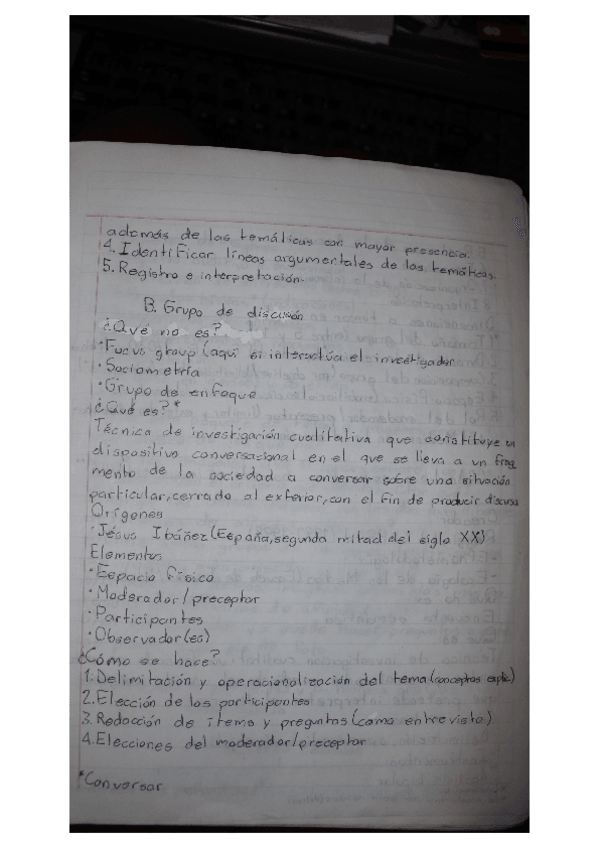 además de las temáticas con mayor presencia.
4. Identificar líneas argumentales de las temáticas.
5. Registro e interpretación.
B. Grupo de discusión
¿Qué no es?
· Focus group (aquí si interactúa el investigador
· Sociometría
· Grupo de enfoque
¿Qué es?*
Técnica de investigación cualitativa que constituye un
dispositivo conversacional en el que se lleva a un frag
mento de la sociedad a conversar sobre una situación
particular, cerrado al exterior, con el fin de producir discurso
Orígenes
· Jesús Ibáñez (España, segunda mitad del siglo XX)
Elementos
· Espacio físico
· Moderador/preceptor
· Participantes
· Observador(es)
¿Cómo se hace?
1. Delimitación y operacionalización del tema (conceptos explic.)
2. Elección de los participantes
3. Redacción de items y preguntas (como entrevista)
4. Elecciones del moderador/preceptor
*Conversar